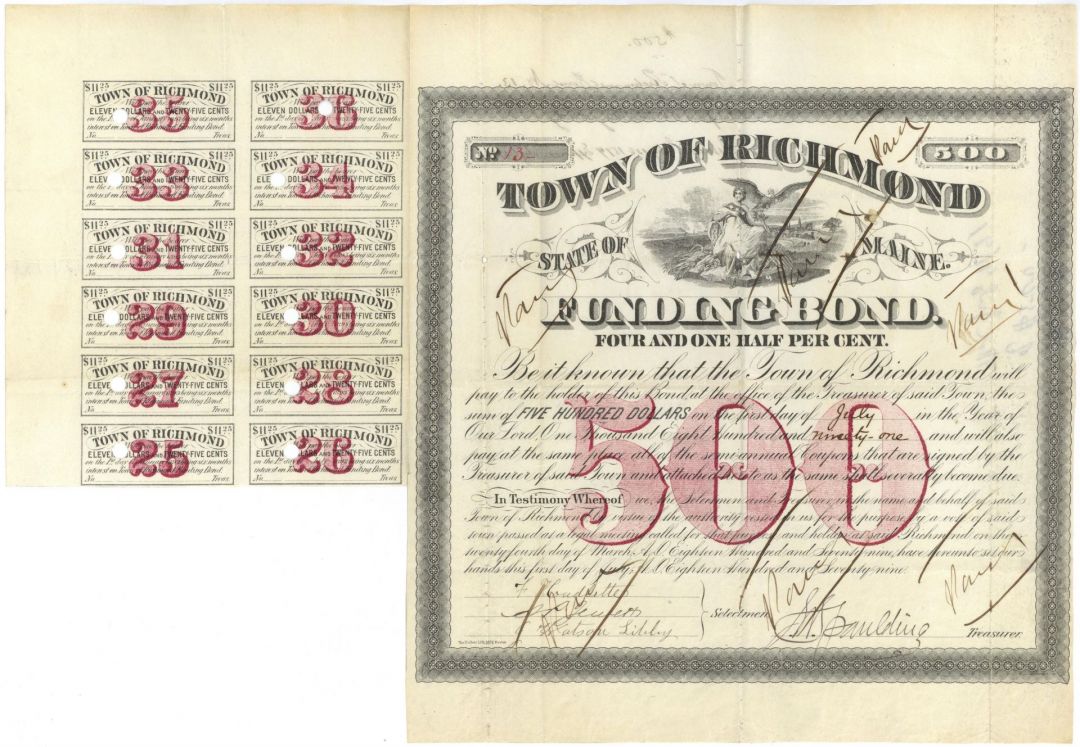 $500.
$11 25 $11 25
TOWN OF RICHMOND
ELEVEN DOLLARS AND TWENTY-FIVE CENTS
on the 1st day being six months
interest on Funding Bond.
No. 35 Treas.
$11 25 $11 25
TOWN OF RICHMOND
ELEVEN DOLLARS AND TWENTY-FIVE CENTS
on the 1st day being six months
interest on Funding Bond.
No. 36 Treas.
$11 25 $11 25
TOWN OF RICHMOND
ELEVEN DOLLARS AND TWENTY-FIVE CENTS
on the being six months
interest on Funding Bond.
No. 33 Treas.
$11 25 $11 25
TOWN OF RICHMOND
ELEVEN DOLLARS AND TWENTY-FIVE CENTS
on the being six months
interest on Funding Bond.
No. 34 Treas.
$11 25 $11 25
TOWN OF RICHMOND
ELEVEN DOLLARS AND TWENTY-FIVE CENTS
on the being six months
interest on Funding Bond.
No. 31 Treas.
$11 25 $11 25
TOWN OF RICHMOND
ELEVEN DOLLARS AND TWENTY-FIVE CENTS
on the being six months
interest on Funding Bond.
No. 32 Treas.
$11 25 $11 25
TOWN OF RICHMOND
ELEVEN DOLLARS AND TWENTY-FIVE CENTS
on the being six months
interest on Funding Bond.
No. 29 Treas.
$11 25 $11 25
TOWN OF RICHMOND
ELEVEN DOLLARS AND TWENTY-FIVE CENTS
on the being six months
interest on Funding Bond.
No. 30 Treas.
$11 25 $11 25
TOWN OF RICHMOND
ELEVEN DOLLARS AND TWENTY-FIVE CENTS
on the being six months
interest on Funding Bond.
No. 27 Treas.
$11 25 $11 25
TOWN OF RICHMOND
ELEVEN DOLLARS AND TWENTY-FIVE CENTS
on the being six months
interest on Funding Bond.
No. 28 Treas.
$11 25 $11 25
TOWN OF RICHMOND
ELEVEN DOLLARS AND TWENTY-FIVE CENTS
on the being six months
interest on Funding Bond.
No. 25 Treas.
$11 25 $11 25
TOWN OF RICHMOND
ELEVEN DOLLARS AND TWENTY-FIVE CENTS
on the being six months
interest on Funding Bond.
No. 26 Treas.
No 13 500
TOWN OF RICHMOND
STATE OF MAINE.
FUNDING BOND.
FOUR AND ONE HALF PER CENT.
Be it known that the Town of Richmond will
pay to the holder of this Bond, at the office of the Treasurer of said Town, the
sum of FIVE HUNDRED DOLLARS on the first day of July in the Year of
Our Lord, One Thousand Eight Hundred and ninety-one and will also
pay at the same place all of the semi-annual Coupons that are signed by the
Treasurer of said Town and attached hereto as the same shall severally become due.
In Testimony Whereof we, the Selectmen and Treasurer, in the name and behalf of said
Town of Richmond by virtue of the authority vested in us for the purpose, by a vote of said
town passed at a legal meeting called for that purpose and holden at said Richmond on the
twenty fourth day of March, A.D. Eighteen Hundred and Seventy-nine, have hereunto set our
hands this first day of July, A.D. Eighteen Hundred and Seventy-nine.
500
Watson Libby
Selectmen.
Spaulding
Treasurer.
Paid
Paid
Paid
Paid
Paid
Paid
Paid